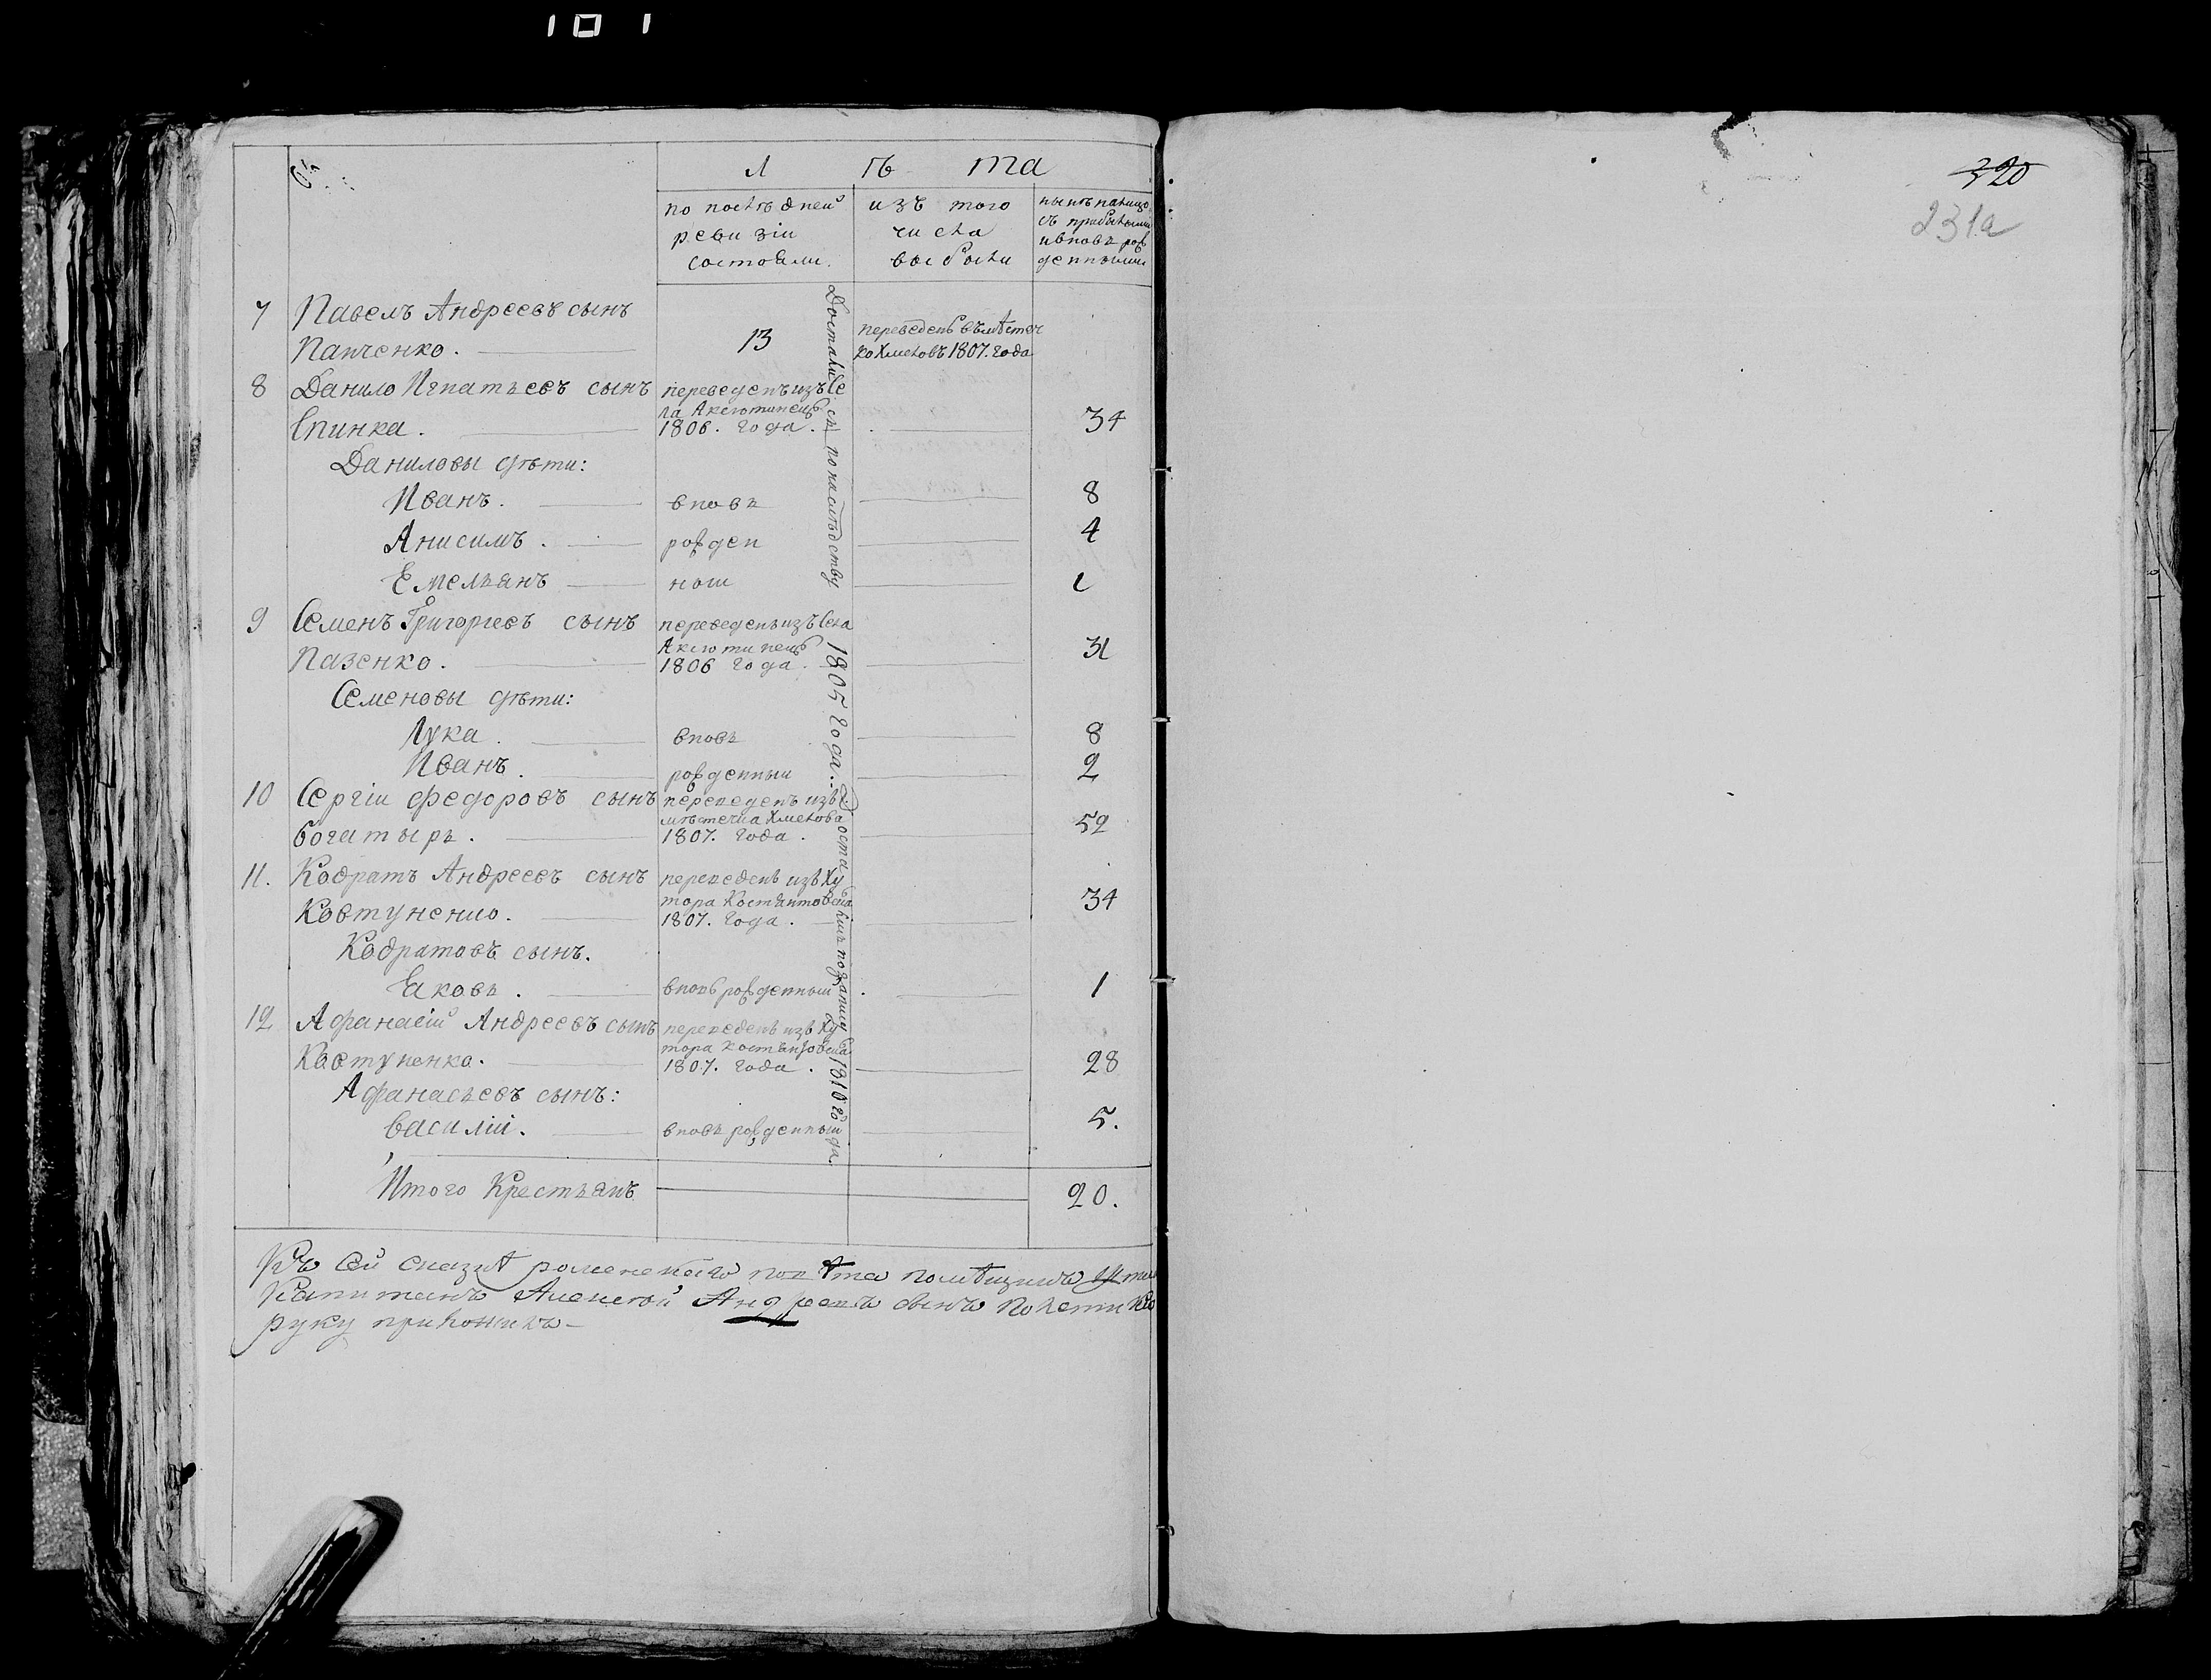 101
Лѣта
по послѣдней ревизіи состояли.
изъ того числа выбыли
нынѣ налицо съ прибылыми и вновь рожденными
7 Павелъ Андреевъ сынъ
Панченко. 13 переведенъ въ местеч
ко Хмеловъ 1807. года
8 Данило Игнатьевъ сынъ переведенъ изъ Се
ла Аксютинецъ
Спинка. 1806. года. 34
Даниловы дѣти:
Иванъ. вновь 8
Анисимъ. рожден 4
Емельянъ ные 1
9 Семенъ Григорьевъ сынъ переведенъ изъ Села
Аксютинецъ
Пазенко. 1806 года. 31
Семеновы дѣти:
Лука. вновь 8
Иванъ. рожденныи 2
10 Сергіи Федоровъ сынъ переведенъ изъ
мѣстечка Хмелова
Богатырь. 1807. года. 52
11. Кодратъ Андреевъ сынъ переведенъ изъ Ху
тора
Ковтуненко. 1807. года. 34
Кодратовъ сынъ.
Яковъ. вновь рожденный. 1
12 Афанасій Андреевъ сынъ переведенъ изъ Ху
тора
Ковтуненко. 1807. года. 28
Афанасьевъ сынъ:
Василіи. вновь рожденныи 5.
Итого Крестьянъ 20.
Достались по наслѣдству 1805 года.
1810 года
Къ сей сказкѣ роменского повѣта помѣщикъ
Капитанъ Алексѣй Андреевъ сынъ
руку приложилъ
320
231а